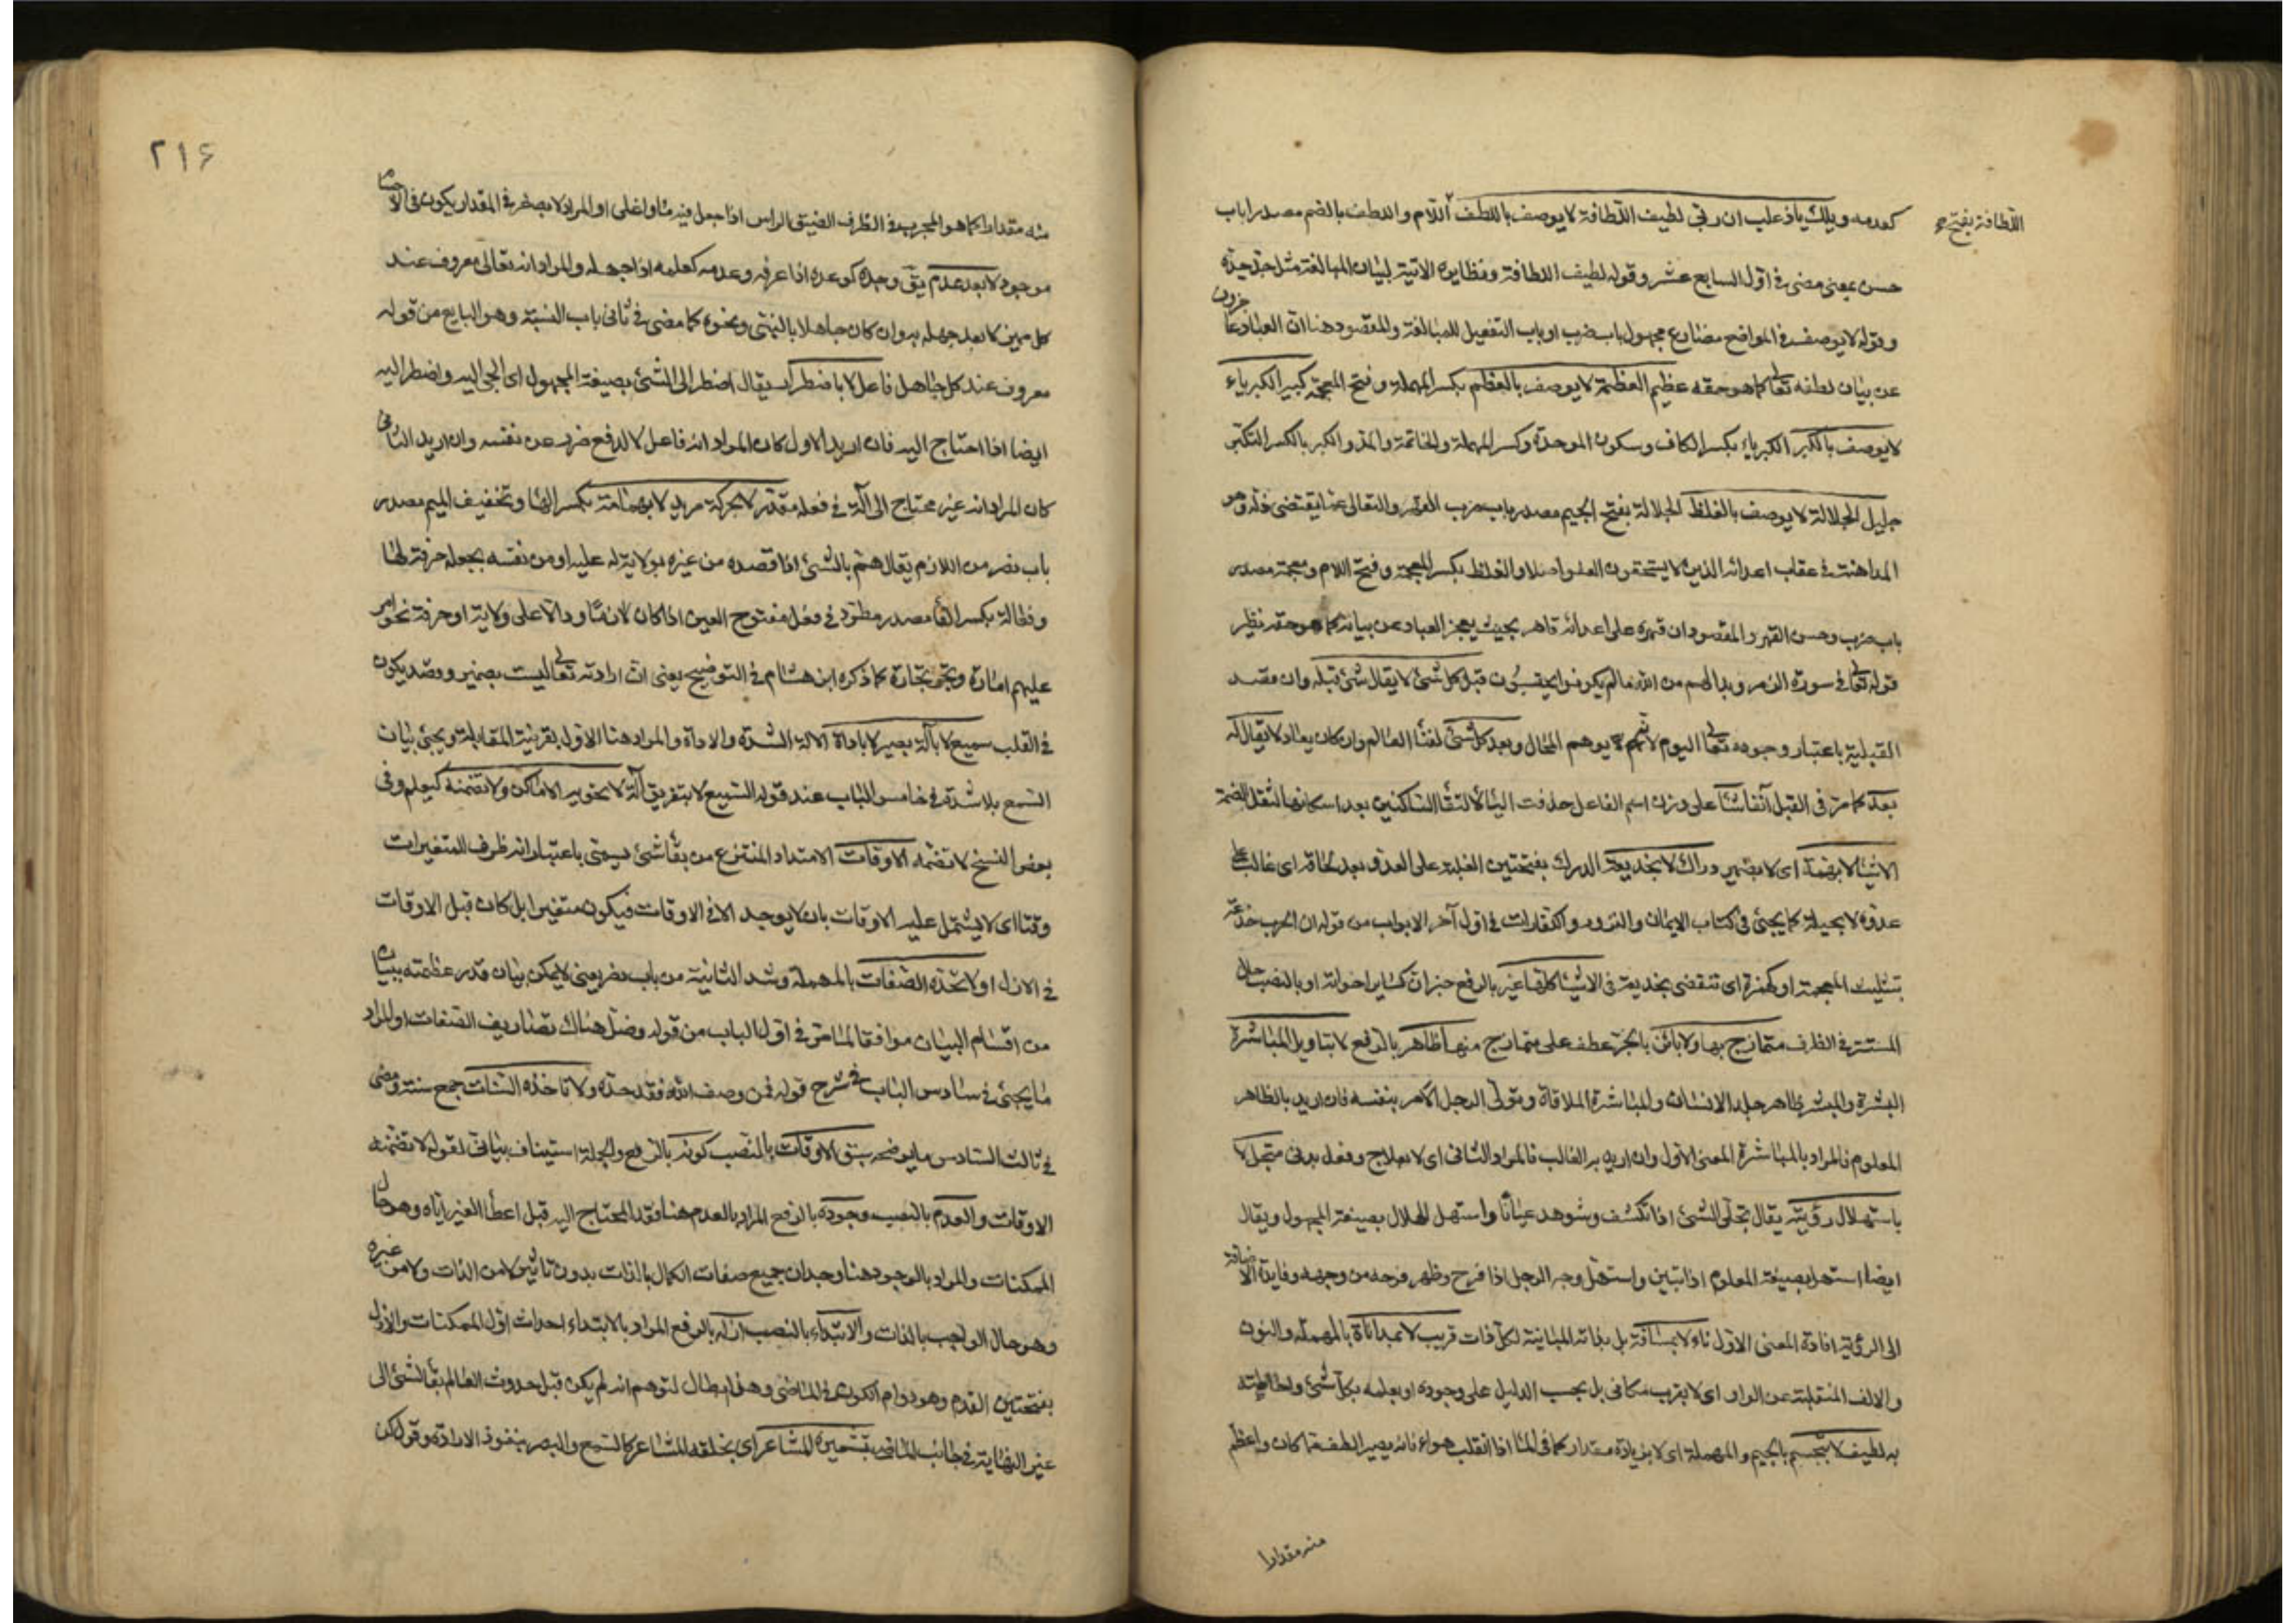 كعدمه ويلك ياذعلب ان ربي لطيف اللطافة لا يوصف باللطف اللام واللطف بالضم مصدرا باب
اللطافة بفتح
حسن بمعنى مضى في اوّل السابع عشر وقوله لطيف اللطافة ونظايره الاتية لبيان المبالغة مثل جدّ جدّه
وقوله لا يوصف في المواضع مضارع مجهول باب ضرب او باب التفعيل للمبالغة والمقصود هنا انّ العباد عاجزون
عن بيان لطفه تعالى كما هو حقه عظيم العظمة لا يوصف بالعظم بكسر المهملة وفتح المعجمة كبير الكبرياء
لا يوصف بالكبر الكبرياء بكسر الكاف وسكون الموحدة وكسر المهملة والخاتمة والمدّ والكبر بالكسر التكبّر
جليل الجلالة لا يوصف بالغلظ الجلالة بفتح الجيم مصدر باب ضرب القهر والتعالى عمّا يقتضى خلافه وهو
المداهنة في عقاب اعدائه الذين لا يستحقون العفو اصلا والغلظ بكسر المعجمة وفتح اللام ومعجمة مصدر
باب ضرب وحسن القهر والمقصود ان قهره على اعدائه قاهر بحيث يعجز العباد عن بيانه كما هو حقه نظير
قوله تعالى في سورة الزمر وبدا لهم من الله ما لم يكونوا يحتسبون قبل كل شئ لا يقال شئ قبله وان قصد
القبلية باعتبار وجوده تعالى اليوم لانّهم لا يوهم المحال وبعد كل شئ لفناء العالم وان كان يعاد لا يقال له
بعد كما مرّ في القبل آنفا شاء على وزن اسم الفاعل حذفت الياء لالتقاء الساكنين بعد اسكانها لثقل الضمة
الاشياء لا بهمة اى لا بضمير درّاك لا بخديعة الدرك بفتحتين الغلبة على العدو بعد لحاقه اى غالب على
عدوّه لا بحيلة كما يجئ في كتاب الايمان والنذور والكفارات في اوّل آخر الابواب من قوله ان الحرب خدعة
بتثليث المعجمة او كهمزة اى تنقضى بخديعة في الاشياء كلها غير بالرفع خبران كساير اخواته او بالنصب حال
المستتر في الظرف متمازج بها ولا باين بالجرّ عطف على متمازج منها ظاهر بالرفع لا بتاويل المباشرة
البشرة والبشر ظاهر جلد الانسان والمباشرة الملاقاة وتولّى الرجل الامر بنفسه فان اريد بالظاهر
المعلوم فالمراد بالمباشرة المعنى الاوّل وان اريد به الغالب فالمراد الثانى اى لا بعلاج وفعل بدنى متجل لا
باستهلال رؤية يقال تجلّى الشئ اذا انكشف وشوهد عيانًا واستهل الهلال بصيغة المجهول ويقال
ايضا استهل بصيغة المعلوم اذا تبين واستهلّ وجه الرجل اذا فرح وظهر فرحه من وجهه وفايدة الاضافة
الى الرؤية افادة المعنى الاوّل ناء لا بمسافة بل بذاته المباينة لكل ذات قريب لا بمداناة بالمهملة والنون
والالف المنقلبة عن الواو اى لا بقرب مكانى بل بحسب الدليل على وجوده او بعلمه بكل شئ واحاطته
به لطيف لا بتجسم بالجيم والمهملة اى لا بزيادة مقدار كما في الماء اذا انقلب هواء فانه يصير الطف مما كان واعظم
منه مقدارا
٢١٦
منه مقدارا كما هو المجرب في الظرف الضيق الراس اذا جعل فيه ماء واغلى او المراد لا بصغر في المقدار يكون في الاجسام
موجود لا بعد عدم يقال وجده كوعده اذا عرفه وعدمه كعلمه اذا جهله والمراد انه تعالى معروف عند
كل مميز لا بعد جهله به وان كان جاهلا بالنبىّ ونحوه كما مضى في ثانى باب النسبة وهو السابع من قوله
معروف عند كل جاهل فاعل لا باضطرار يقال اضطر الى الشئ بصيغة المجهول اى الجئ اليه واضطر اليه
ايضا اذا احتاج اليه فان اريد الاول كان المراد انه فاعل لا لدفع ضرر عن نفسه وان اريد الثانى
كان المراد انه غير محتاج الى آلة في فعله مقدّر لا بحركة مريد لا بهمامة بكسر الهاء وتخفيف الميم مصدر
باب نصر من اللازم يقال همّ بالشئ اذا قصده من غيره بولاية له عليه او من نفسه بجعله حرفة لها
وفعالة بكسر الفاء مصدر مطّرد في فعل مفتوح العين اذا كان لازمًا ودالّا على ولاية او حرفة نحو امر
عليهم امارة وتجر تجارة كما ذكره ابن هشام في التوضيح يعنى انّ ارادته تعالى ليست بضمير وقصد يكون
في القلب سميع لا بآلة بصير لا باداة الآلة الشدّة والاداة والمراد هنا الاوّل بقرينة المقابلة ويجئ بيان
السّمع بلا شدّة في خامس الباب عند قوله السّميع لا بتفريق آلة لا تحويه الاماكن ولا تضمنه كيعلم وفى
بعض النسخ لا تضمّه الاوقات الامتداد المنتزع من بقاء شئ يسمّى باعتبار انه ظرف للمتغيرات
وقتا اى لا يشتمل عليه الاوقات بان لا يوجد الا في الاوقات فيكون متغيرا بل كان قبل الاوقات
في الازل او لا تحدّه الصّفات بالمهملة وشد الثانية من باب نصر يعنى لا يمكن بيان قدر عظمته ببيان
من اقسام البيان موافقا لما مرّ في اوّل الباب من قوله وضلّ هناك تصاريف الصّفات او المراد
ما يجئ في سادس الباب في شرح قوله فمن وصف الله فقد حدّه ولا تاخذه السّنات جمع سنة ومضى
في ثالث السّادس ما يوضحه سبق الاوقات بالنّصب كونه بالرفع والجملة استيناف بيانى لقوله لا تضمنه
الاوقات والعدم بالنصب وجوده بالرفع المراد بالعدم هنا فقد المحتاج اليه قبل اعطاء الغير ايّاه وهو حال
الممكنات والمراد بالوجود هنا وجدان جميع صفات الكمال بالذات بدون تاثير لا من الذات ولا من غيره
وهو حال الواجب بالذات والابتداء بالنصب ازله بالرفع المراد بالابتداء احداث اوّل الممكنات والازل
بفتحتين القدم وهو دوام الكون في الماضى وهذا ابطال لتوهم انه لم يكن قبل حدوث العالم بقاء الشئ الى
غير النهاية في جانب الماضى بتشعيره المشاعر اى بخلقه المشاعر كالسّمع والبصر بنفوذ الارادة وقول كن